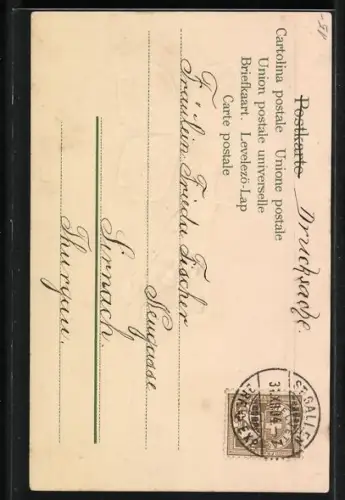 Postkarte Drucksache.
Cartolina postale Unione postale
Union postale universelle
Briefkaart. Levelező-Lap
Carte postale
Fräulein Frieda Fischer
Neugasse
Sirnach.
Thurgau.
ST. GALLEN
31.XII.04